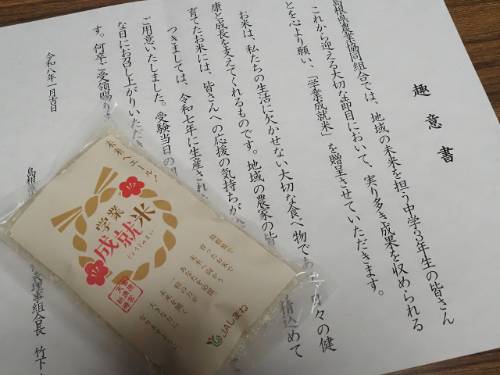 趣意書
島根県農業協同組合では、地域の未来を担う中学3年生の皆さん
これから迎える大切な節目において、実り多き成果を収められる
とを心より願い、「学業成就米」を贈呈させていただきます。
お米は、私たちの生活に欠かせない大切な食べ物であり、日々の健
康と成長を支えてくれるものです。地域の農家の皆
情込めて
育てたお米には、皆さんへの応援の気持ちが
つきましては、令和七年に生産され
ご用意いたしました。受験当日の
な日にお召し上がりいただき
す。何卒ご受領賜り
令和八年一月吉日
島根
理事組合長 竹下
未来へエール!
学業
成就米
JAしまね